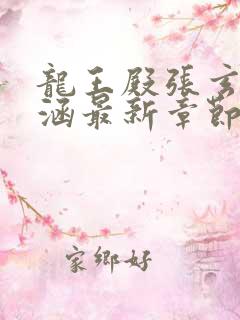 龍王殿張玄
涵最新章節
家鄉好